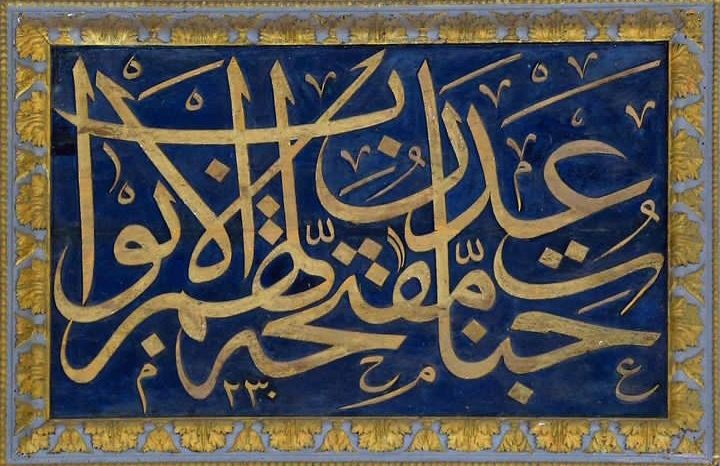 جنّات عدن مفتّحة لهم الابواب
٢٣٠